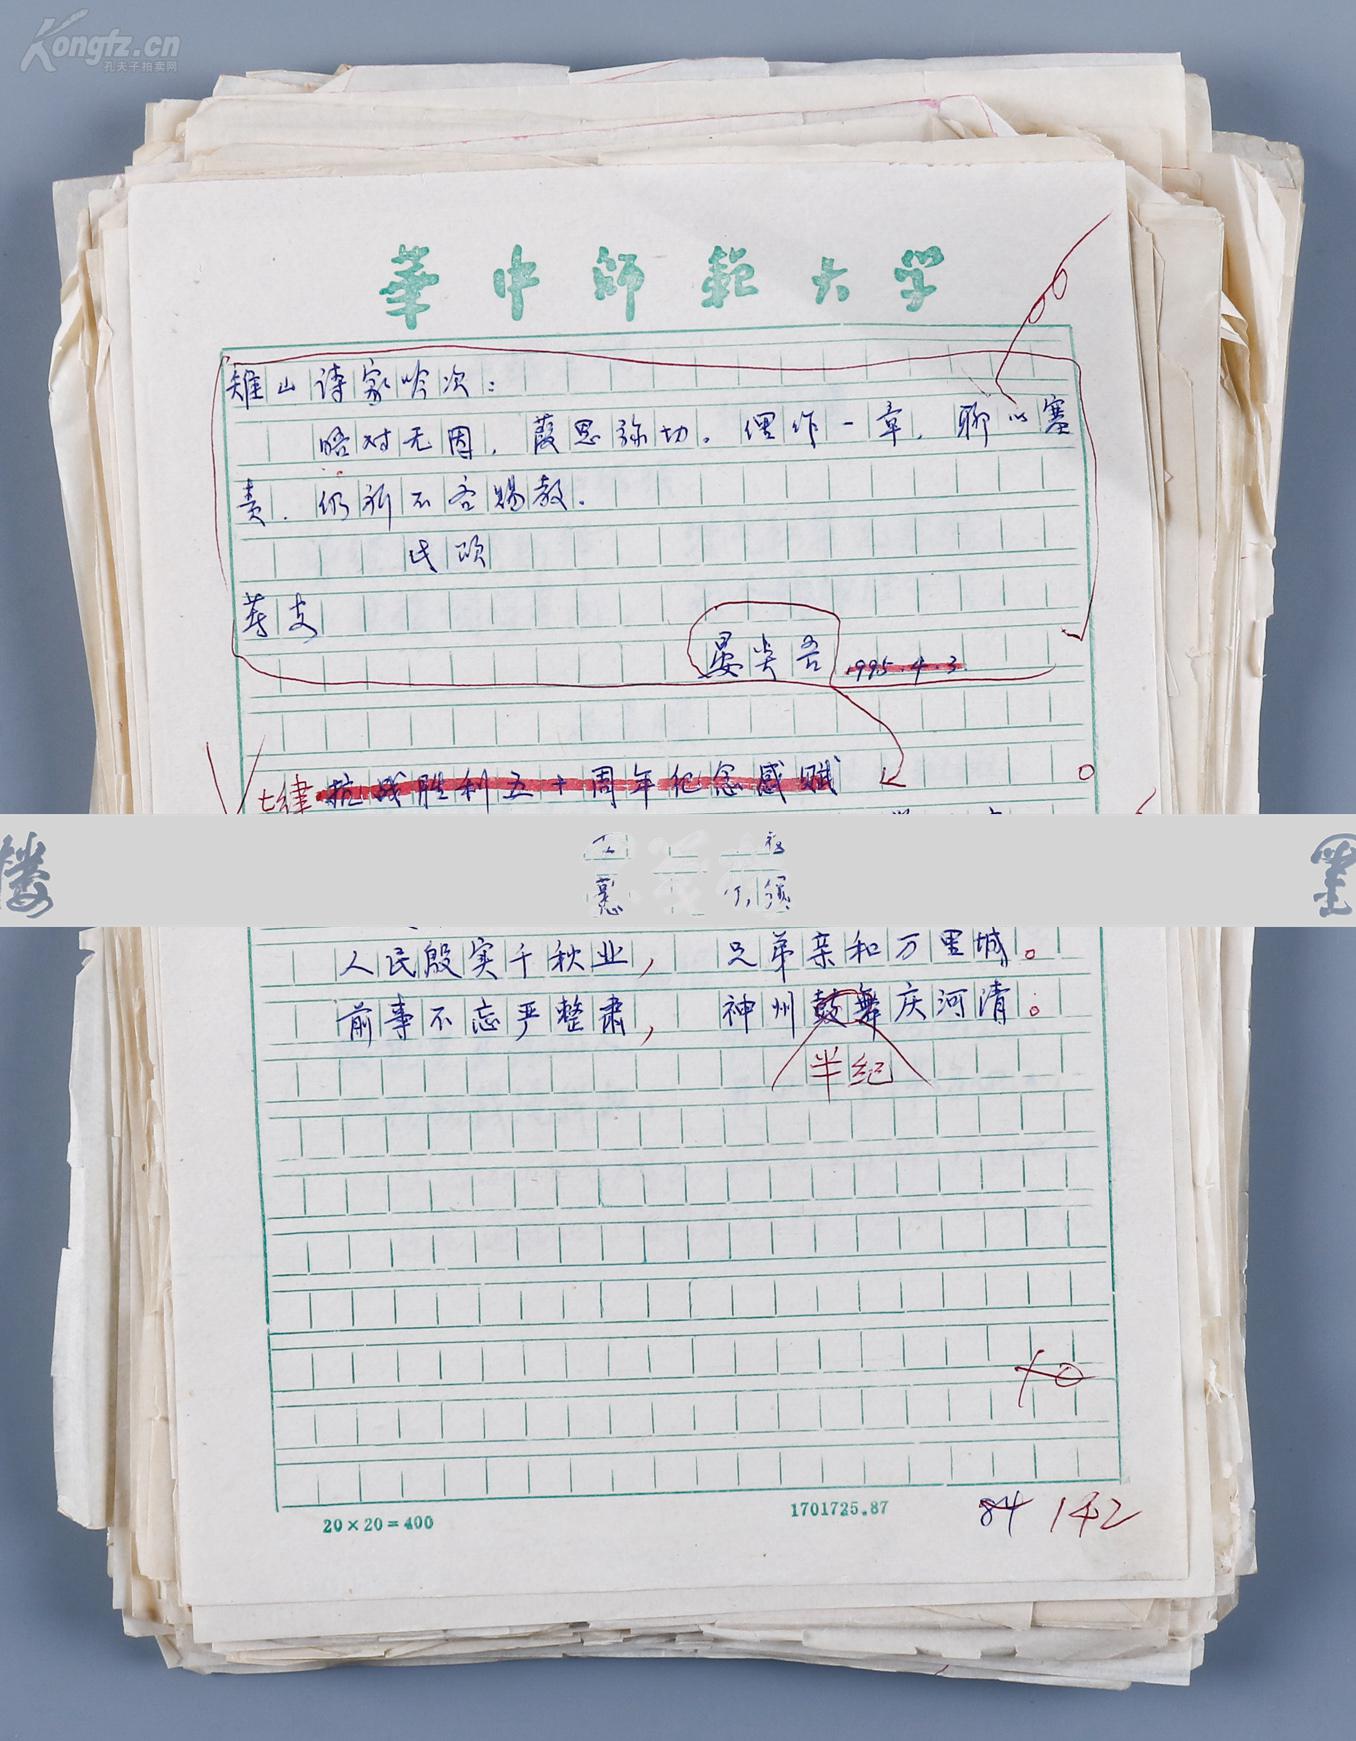 Kongfz.cn
孔夫子拍卖网
華中師範大学
雉山诗家吟次：
晤对无因，葭思弥切。俚作一章，聊以塞
责，仍祈不吝赐教。
氏颂
著安
晏炎吾 1995.4.3
七律 抗战胜利五十周年纪念感赋
墨笺楼
人民殷实千秋业，兄弟亲和万里城。
前事不忘严整肃，神州鼓舞庆河清。
半纪
20×20=400
1701725.87
84 142